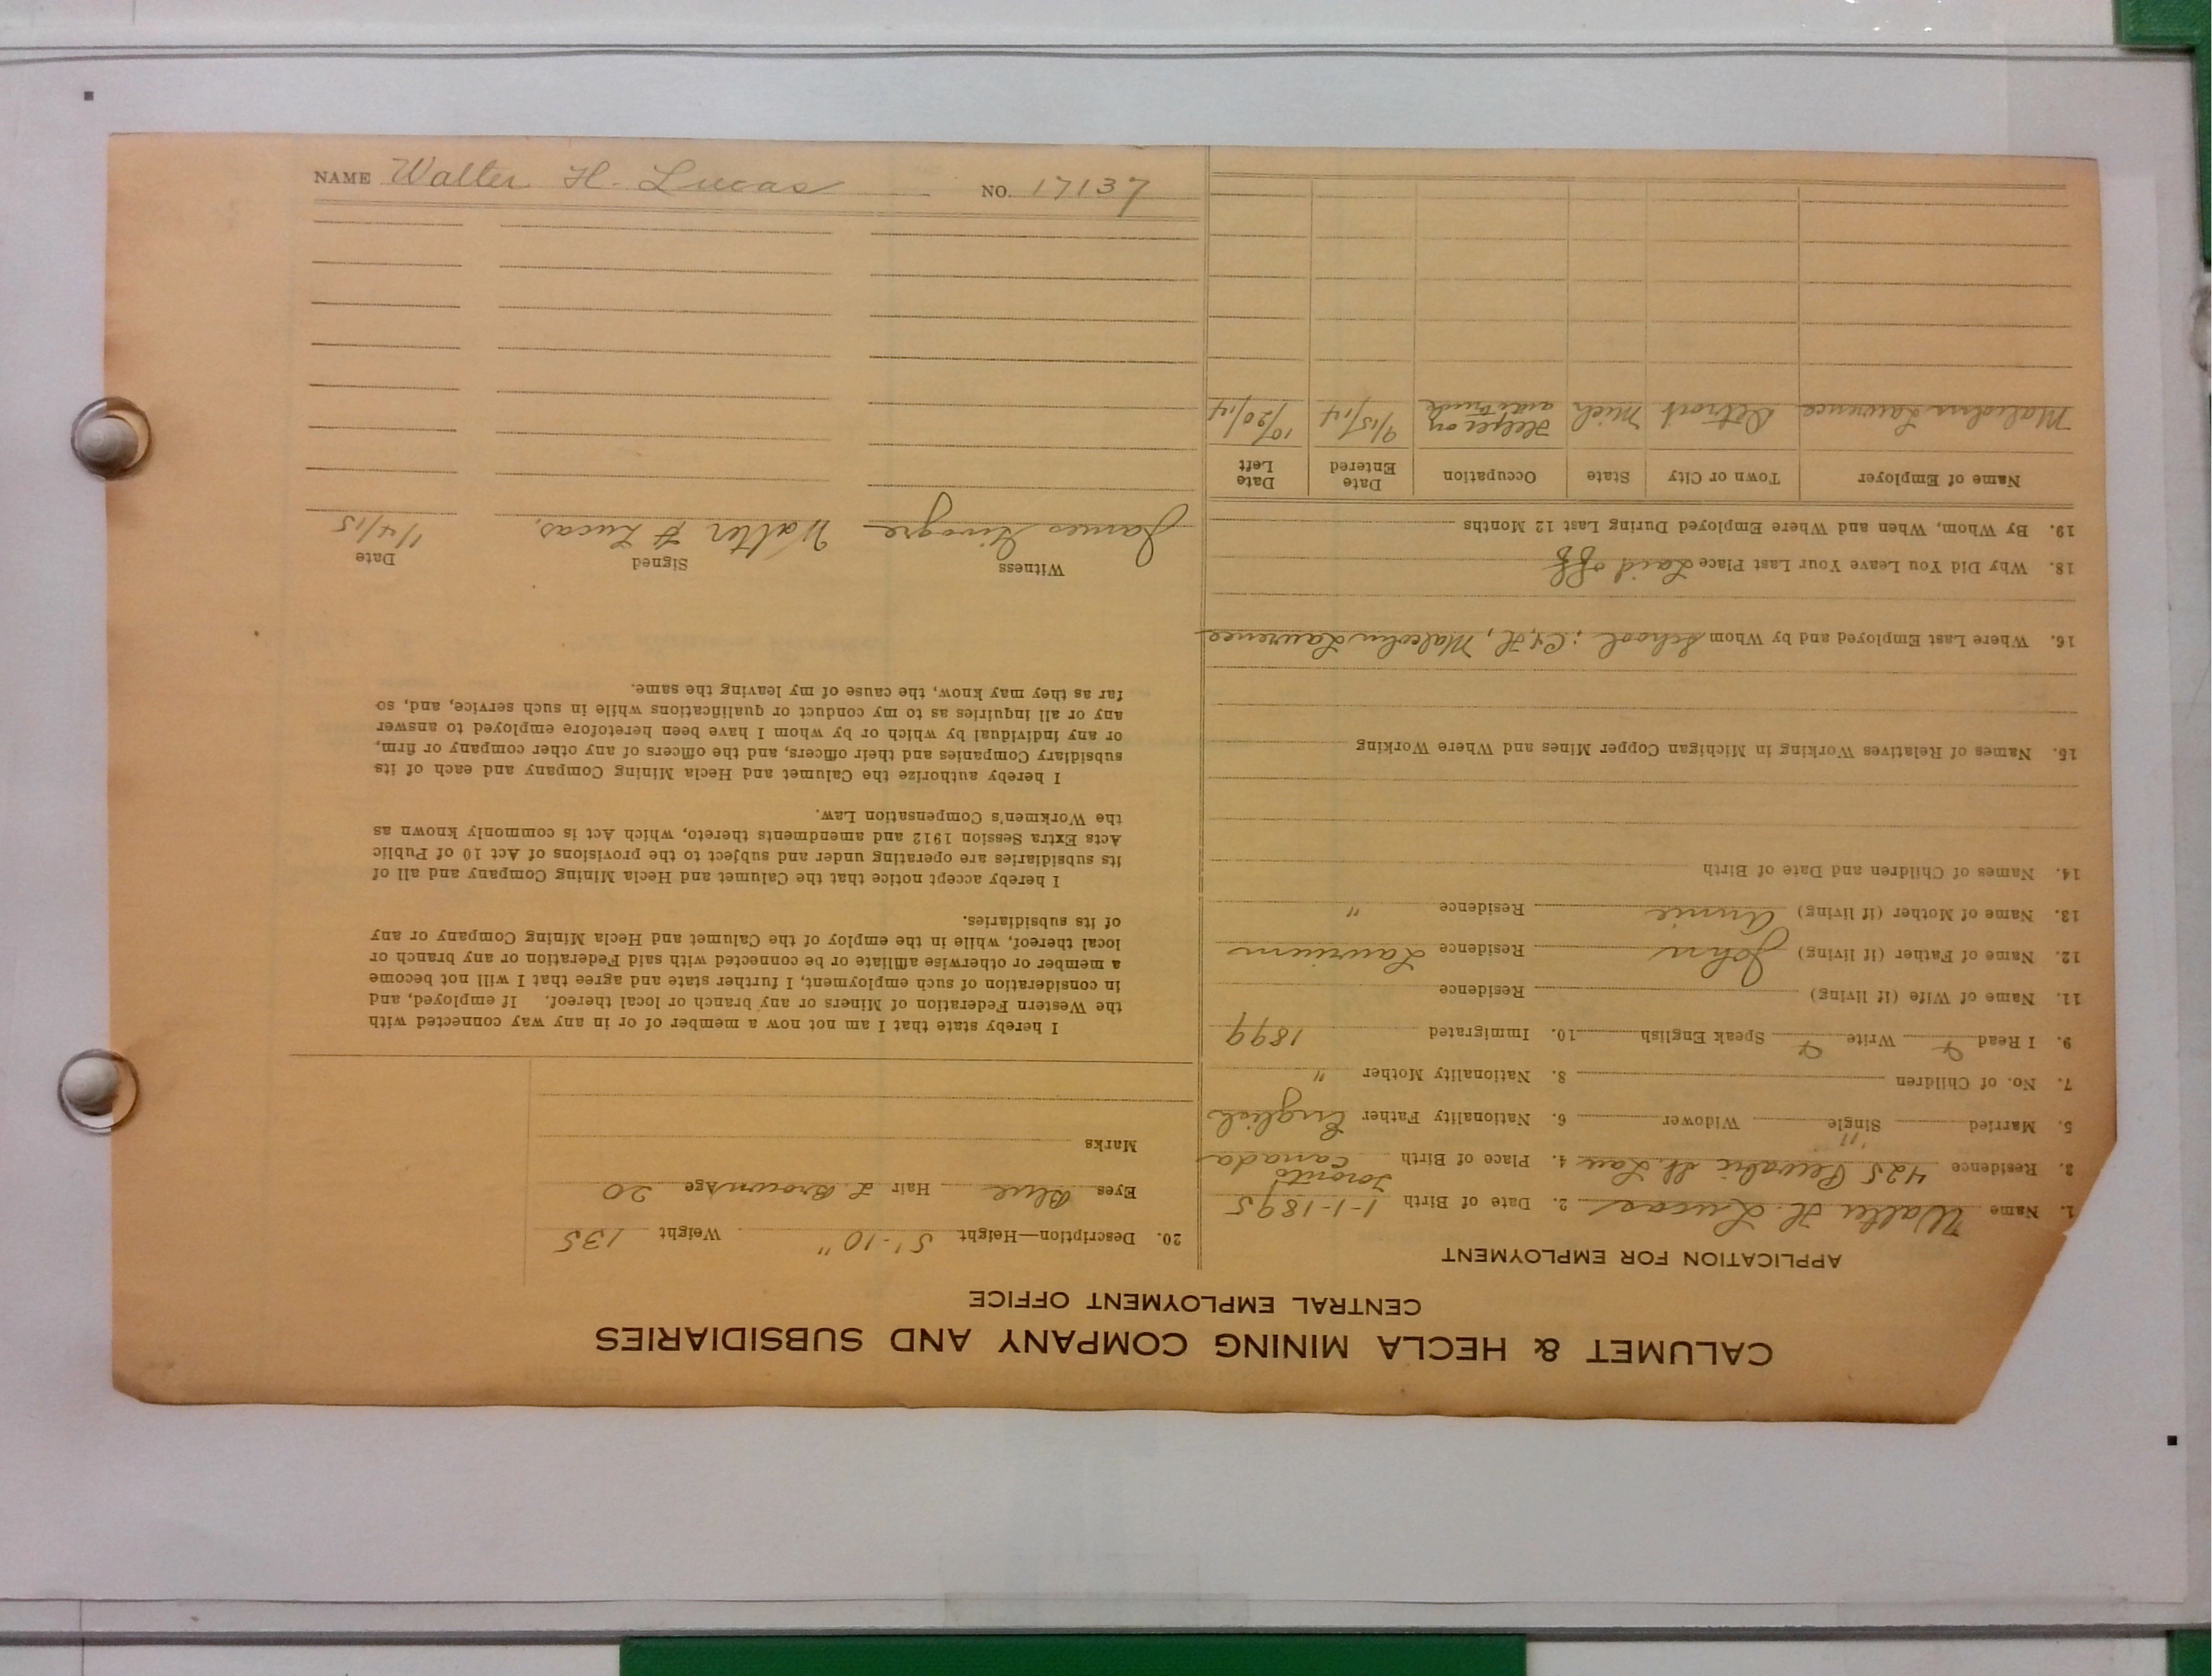 NAME Walter H. Lucas NO. 17137
CALUMET & HECLA MINING COMPANY AND SUBSIDIARIES
CENTRAL EMPLOYMENT OFFICE
APPLICATION FOR EMPLOYMENT
1. Name Walter H. Lucas 2. Date of Birth 1-1-1895
3. Residence 425 Pewabic St. Lau 4. Place of Birth Toronto Canada
5. Married Single " Widower 6. Nationality Father English
7. No. of Children 8. Nationality Mother "
9. I Read Write Speak English 10. Immigrated 1899
11. Name of Wife (if living) Residence
12. Name of Father (if living) John Residence Laurium
13. Name of Mother (if living) Annie Residence "
14. Names of Children and Date of Birth
15. Names of Relatives Working in Michigan Copper Mines and Where Working
16. Where Last Employed and by Whom School; C&H, Malcolm Lawrence
18. Why Did You Leave Your Last Place Laid off
19. By Whom, When and Where Employed During Last 12 Months
Name of Employer Town or City State Occupation Date Entered Date Left
Malcolm Lawrence Detroit Mich Helper on auto truck 9/15/14 10/20/14
20. Description—Height 5'-10" Weight 135
Eyes Blue Hair L. Brown Age 20
Marks
I hereby state that I am not now a member of or in any way connected with
the Western Federation of Miners or any branch or local thereof. If employed, and
in consideration of such employment, I further state and agree that I will not become
a member or otherwise affiliate or be connected with said Federation or any branch or
local thereof, while in the employ of the Calumet and Hecla Mining Company or any
of its subsidiaries.
I hereby accept notice that the Calumet and Hecla Mining Company and all of
its subsidiaries are operating under and subject to the provisions of Act 10 of Public
Acts Extra Session 1912 and amendments thereto, which Act is commonly known as
the Workmen's Compensation Law.
I hereby authorize the Calumet and Hecla Mining Company and each of its
subsidiary Companies and their officers, and the officers of any other company or firm,
or any individual by which or by whom I have been heretofore employed to answer
any or all inquiries as to my conduct or qualifications while in such service, and, so
far as they may know, the cause of my leaving the same.
Witness Signed Date
James Walter H Lucas. 1/4/15